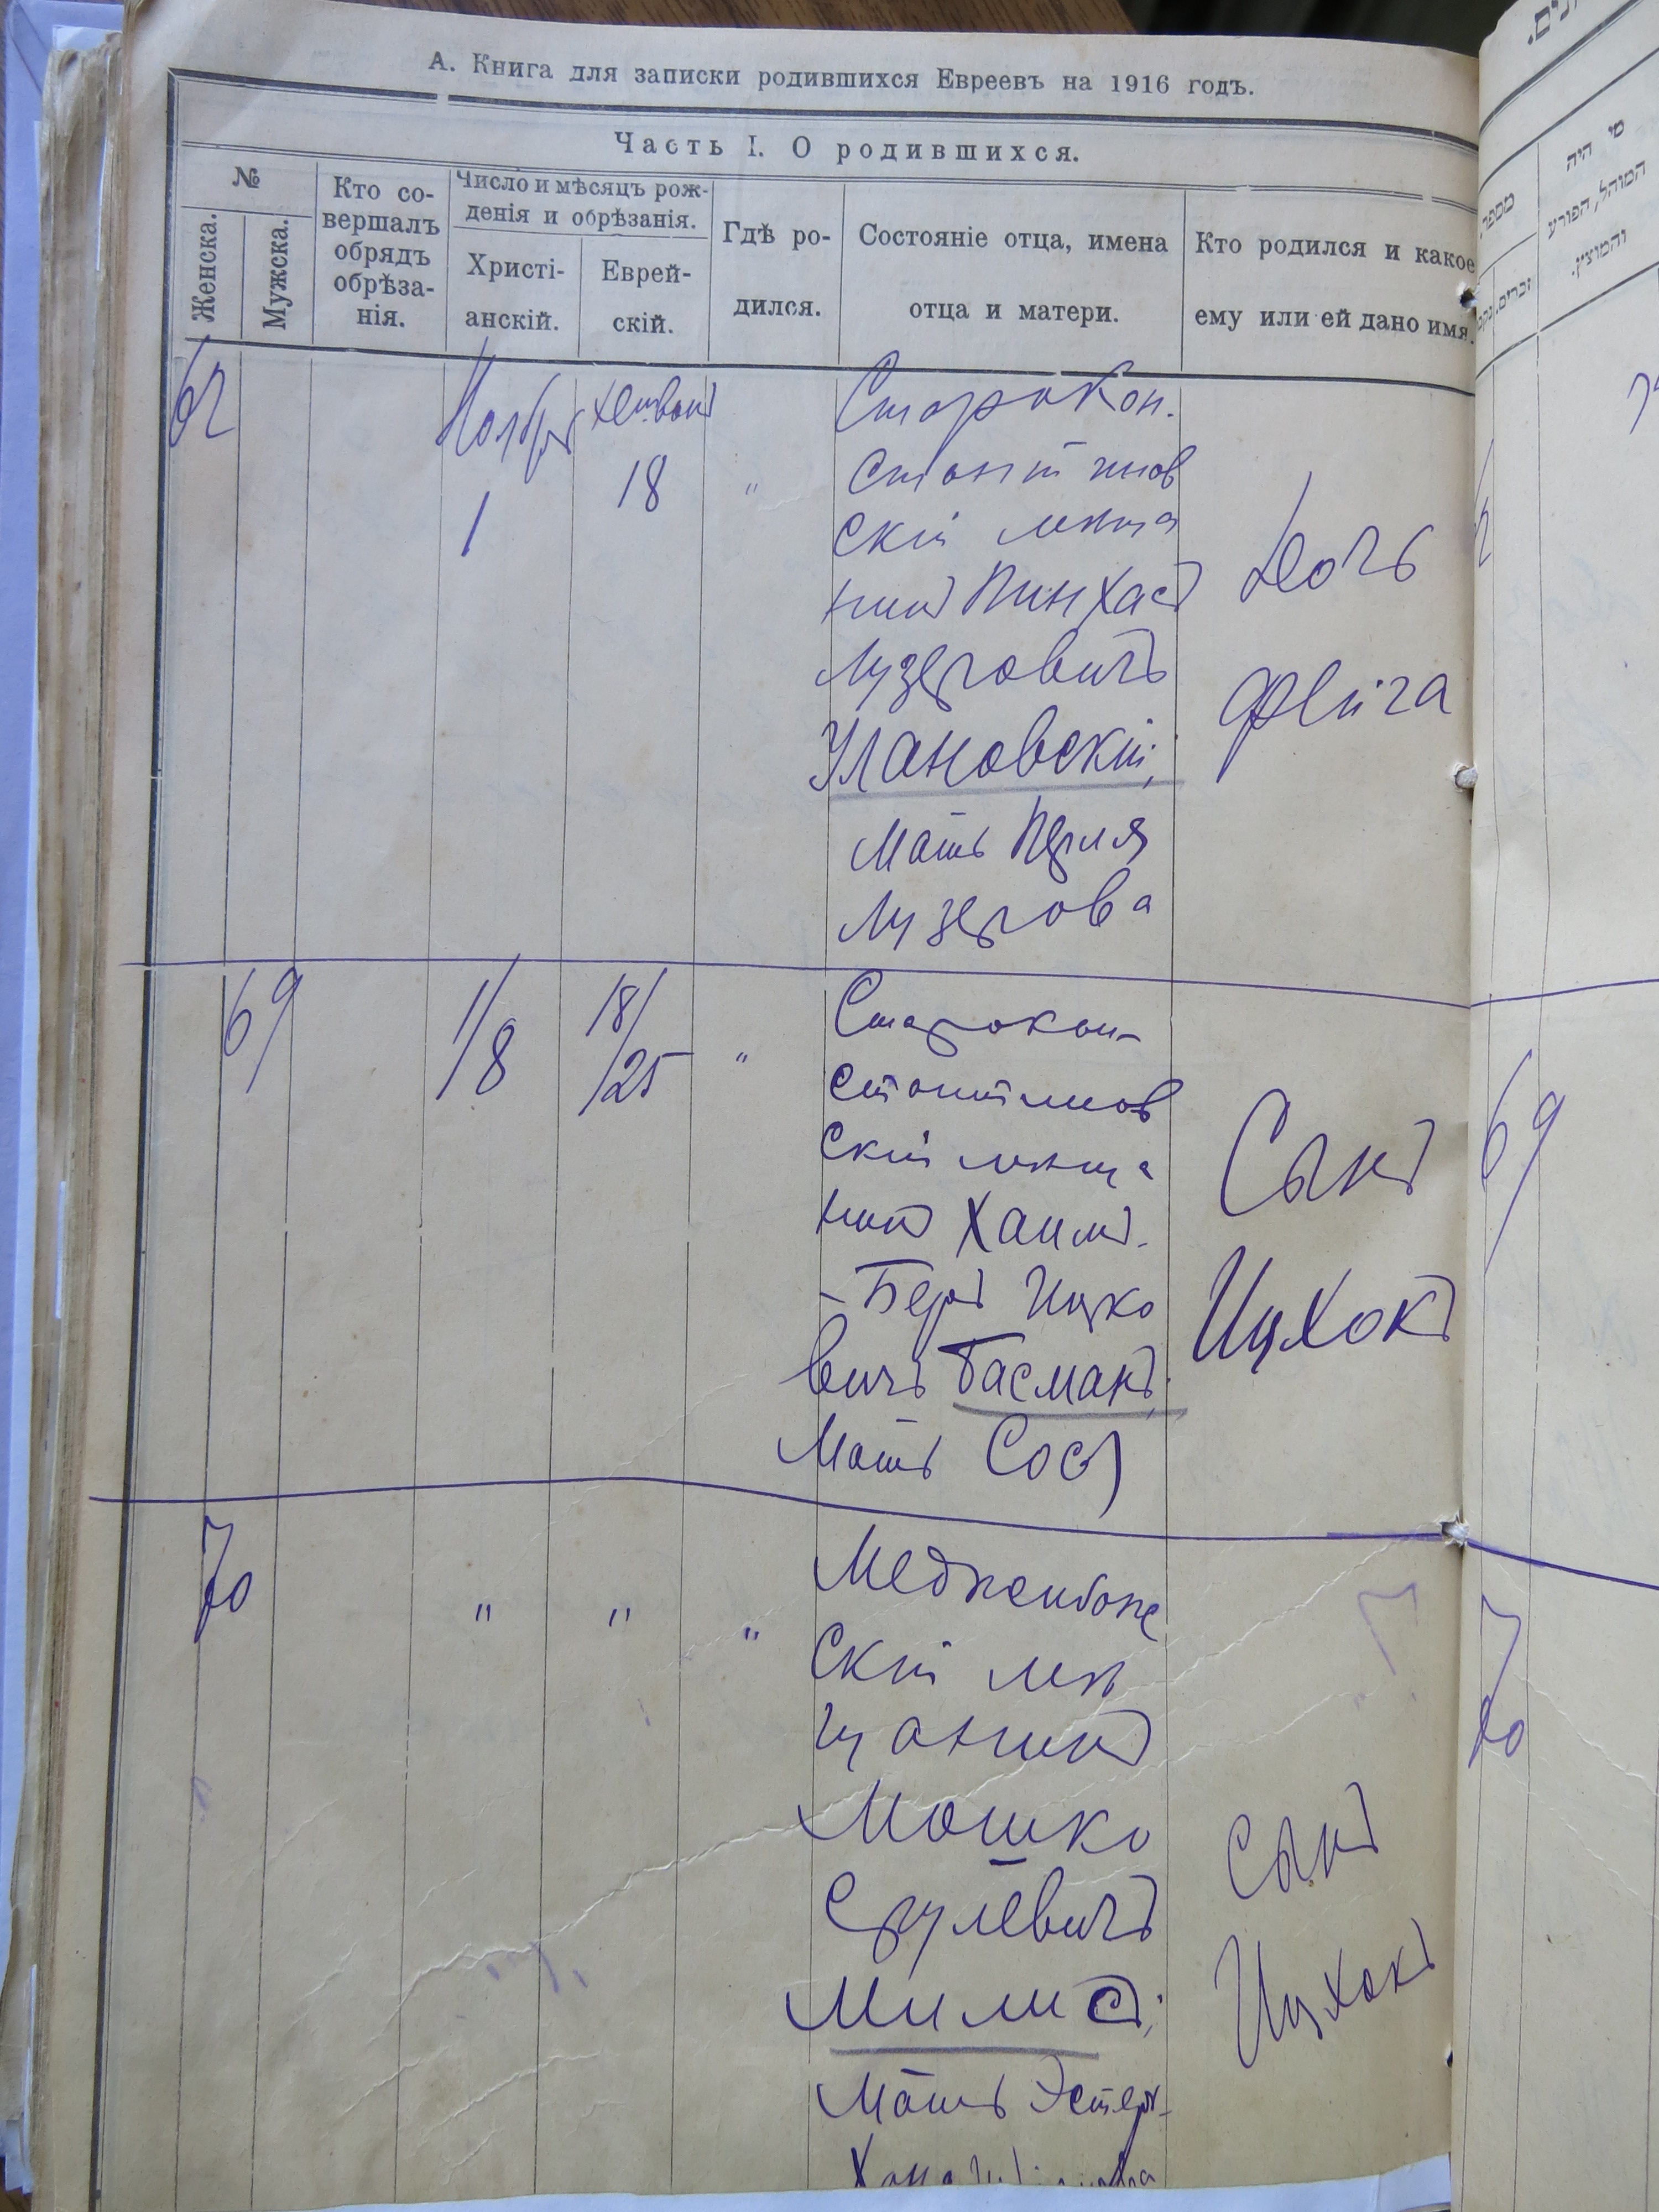 А. Книга для записки родившихся Евреевъ на 1916 годъ.
Часть I. О родившихся.
№
Женска.
Мужска.
Кто со-
вершалъ
обрядъ
обрѣза-
нія.
Число и мѣсяцъ рож-
денія и обрѣзанія.
Христі-
анскій.
Еврей-
скій.
Гдѣ ро-
дился.
Состояніе отца, имена
отца и матери.
Кто родился и какое
ему или ей дано имя.
62
Ноября
1
Хешвонъ
18
"
Старокон.
стантинов
скій мѣща
нинъ Пинхасъ
Лузеровичъ
Улановскій;
Мать Перля
Лузерова
Дочь
Фейга
69
1/8
18/25
"
Старокон-
стантинов
скій мѣща
нинъ Хаимъ-
-Беръ Ицко
вичъ Басманъ,
Мать Сося
Сынъ
Ицхокъ
70
"
"
"
Меджибож
скій мѣ
щанинъ
Мошко
Срулевичъ
Милисъ;
Мать Эстеръ-
Хана
Сынъ
Ицхокъ
מספר
מי היה
המוהל, הפורע
והמוצץ.
69
70